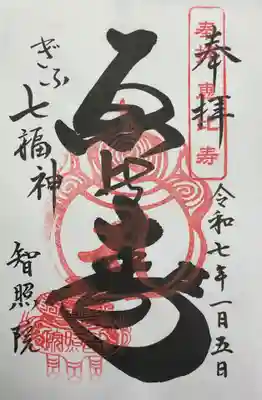 奉拝
令和七年一月五日
恵比寿
ぎふ
七福神
智照院